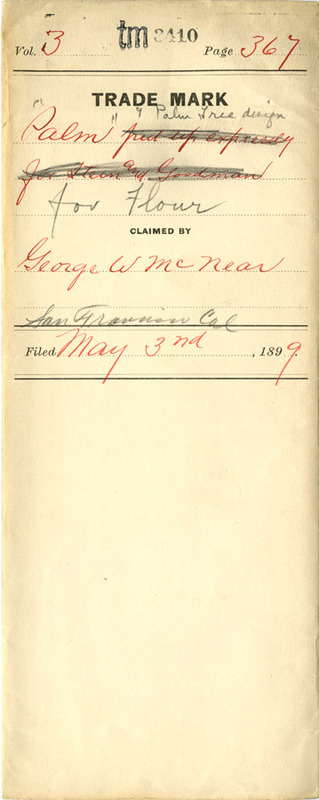 Vol. 3 tm 3410 Page 367
TRADE MARK
& Palm Tree design
"Palm" put up expressly
for Stein and Goodman
for Flour
CLAIMED BY
George W McNear
San Francisco Cal
Filed May 3nd, 1899.